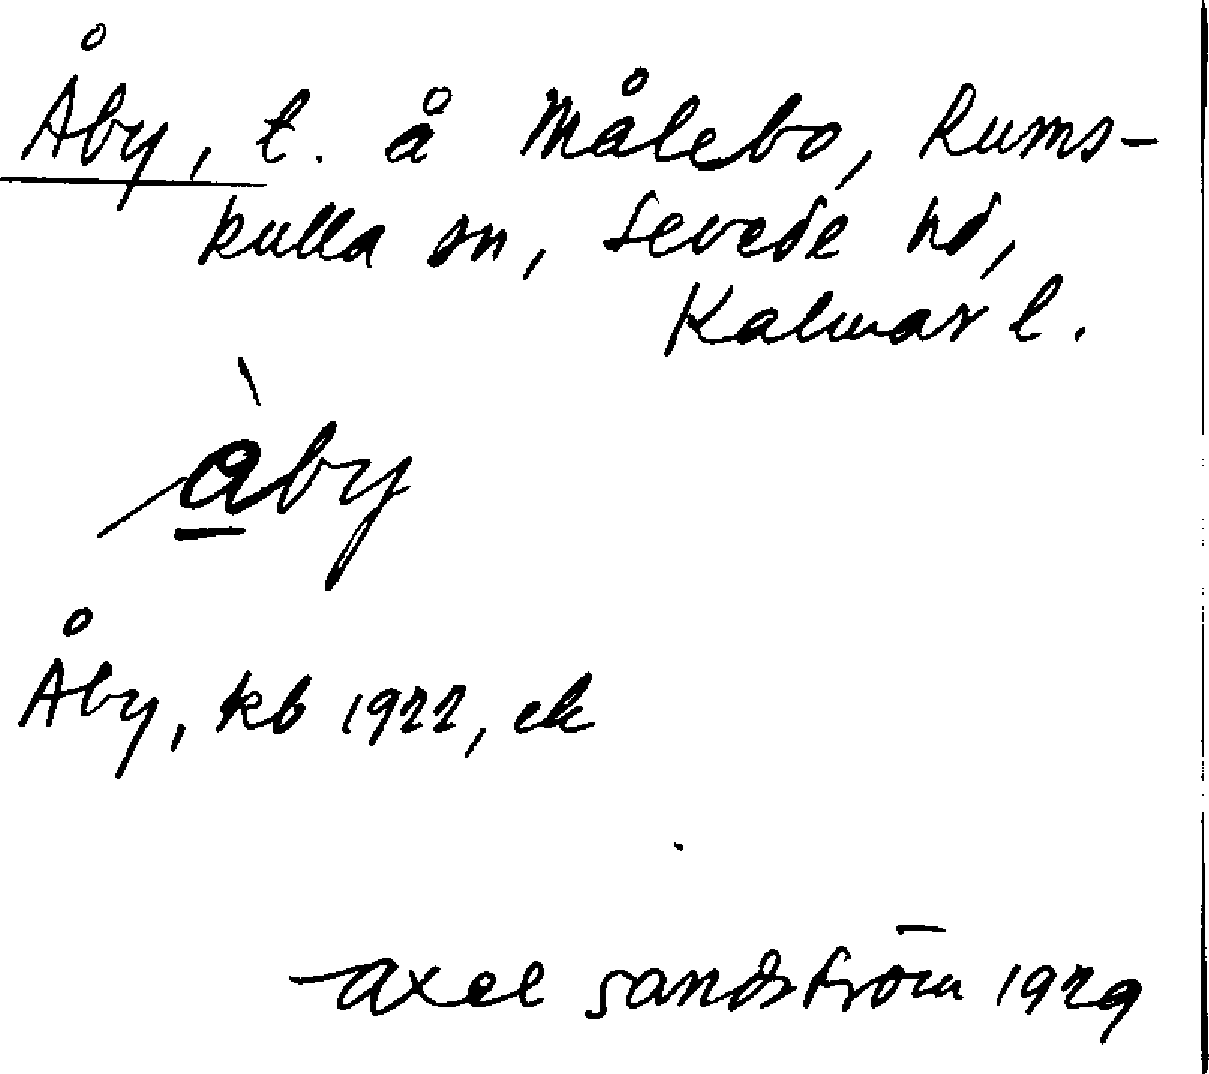 Åby, t. å Målebo, Rums-
kulla sn, Sevede hd,
Kalmar l.
åby
Åby, kb 1922, ek
Axel Sandström 1929